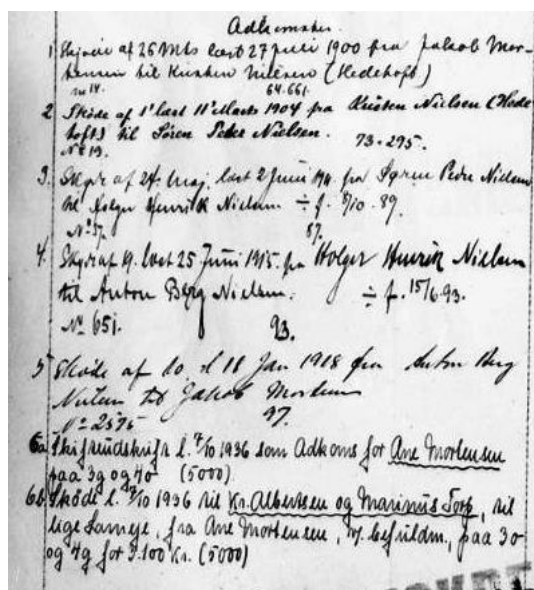 Adkomster.
1 Skjøde af 26 Mts læst 27 Juli 1900 fra Jakob Mor-
tensen til Kristen Nielsen (Hedetoft)
No 14. 64.661.
2 Skøde af 1' læst 11' Marts 1904 fra Kristen Nielsen (Hede
toft) til Søren Peder Nielsen.
No 19. 73-295.
3. Skjøde af 24. Maj læst 2 Juni fra Søren Peder Nielsen
til Holger Henrik Nielsen ÷ f. 8/10. 89.
No 37. 87.
4. Skjøde af 19. læst 25 Juni 1915. fra Holger Henrik Nielsen
til Anton Berg Nielsen. ÷ f. 15/6. 93.
No 651. 93.
5 Skøde af 10. l 18 Jan 1918 fra Anton Berg
Nielsen til Jakob Mortensen
No 2575 97.
6a Skifteudskrift l. 7/10 1936 som Adkoms for Ane Mortensen
paa 3g og 40 (5000).
6b. Skøde l. /10 1936 til Kr. Albertsen og Marinus Torp, til
lige Sameje, fra Ane Mortensen, iflg. befuldm., paa 30
og 4g for 3.100 Kr. (5000)